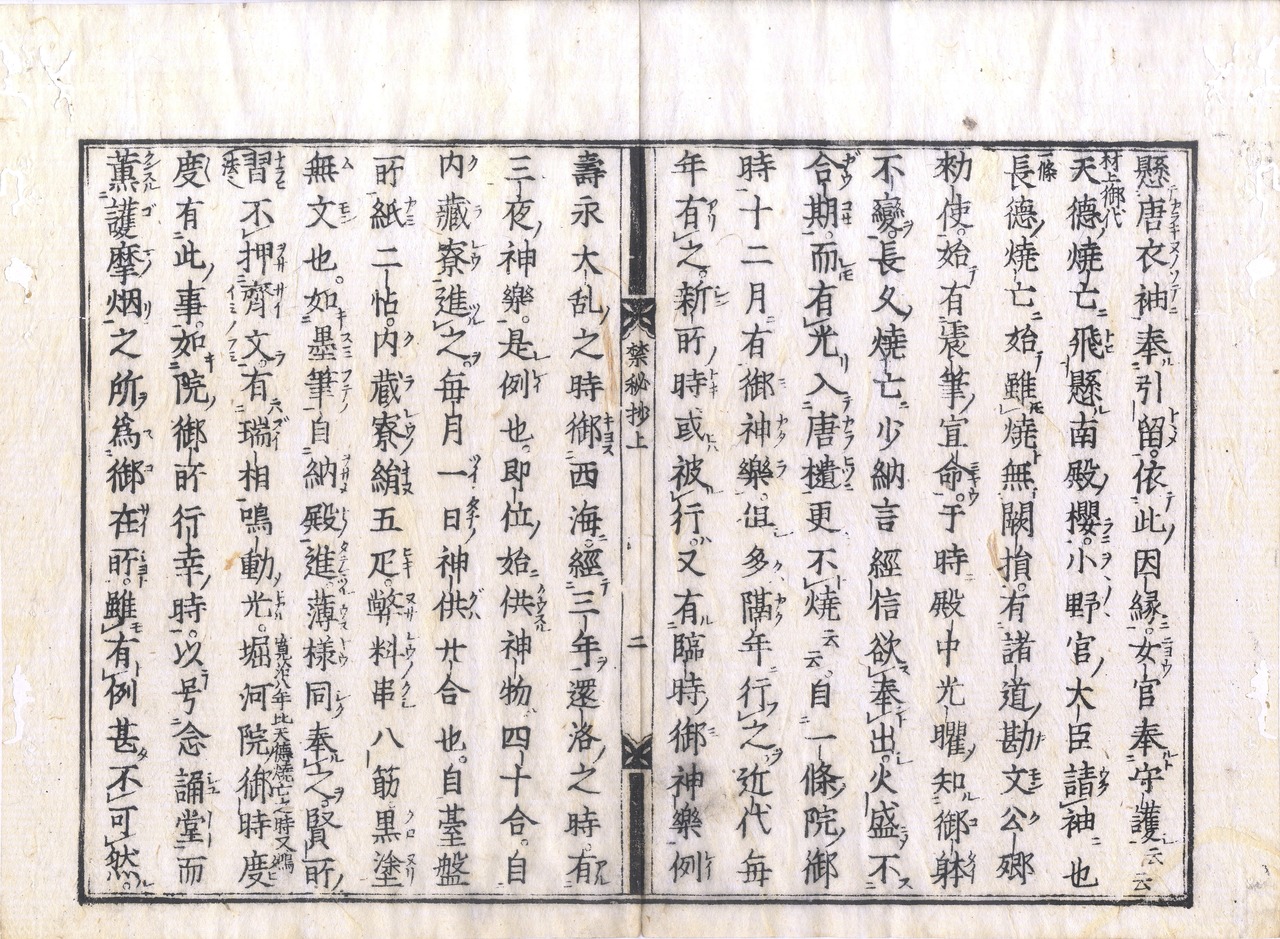 懸唐衣袖奉引留。依此因縁。女官奉守護云云
天德燒亡飛懸南殿櫻。小野宮大臣請袖也
長德燒亡始雖燒無闕損。有諸道勘文公卿
勅使。始有宸筆宣命。于時殿中光曜知御躰
不變。長久燒亡少納言經信欲奉出。火盛不
合期。而有光入唐櫃更不燒云云。自一條院御
時十二月有御神樂。但多隔年行之。近代毎
年有之。新所時或被行。又有臨時御神樂例
禁秘抄上
二
壽永大乱之時御西海。經三年還洛之時有
三夜神樂。是例也。即位始供神物四十合。自
内藏寮進之。毎月一日神供廿合也。自臺盤
所紙二帖。内藏寮絹五疋。幣料串八筋黒塗
無文也。如墨筆自納殿進薄様同奉之。賢所
習不押齊文。有瑞相鳴動光。堀河院御時度
度有此事。如院御所行幸時。以号念誦堂而
薫護摩烟之所為御在所。雖有例甚不可然。